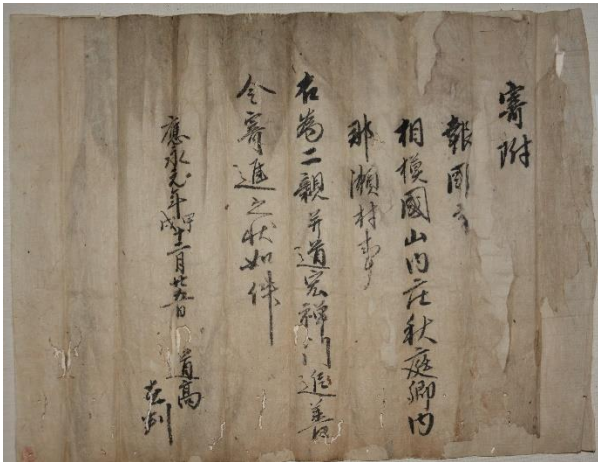 寄附
報国寺
相模國山内庄秋庭郷内
那瀬村事
右為二親并道宏禅門追善
令寄進之状如件
應永元年甲戌十二月廿九日
道高
在判